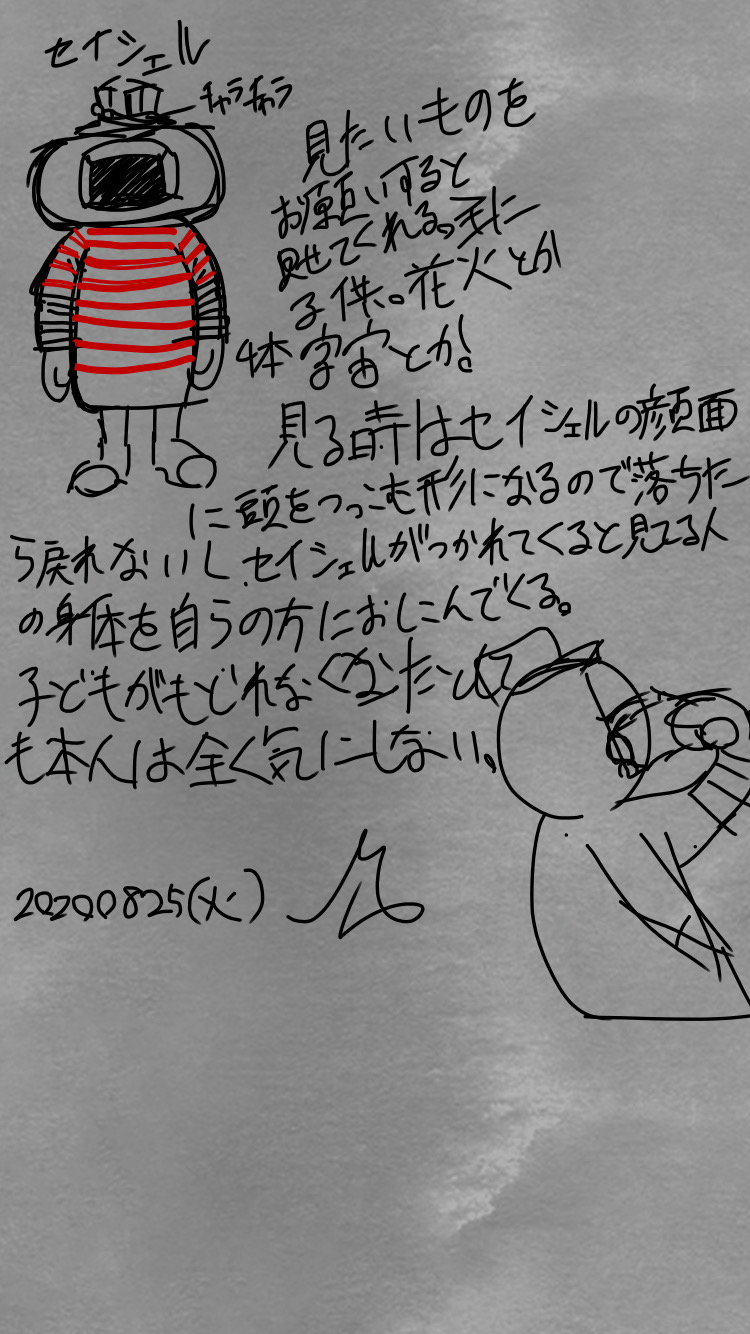 セイシェル
チャラチャラ
見たいものを
お願いすると
見せてくれる。主に
子供。花火とか
体 宇宙とか!
見る時はセイシェルの顔面
に頭をつっこむ形になるので落ちた
ら戻れないし、セイシェルがつかれてくると見てる人
の身体を自らの方におしこんでくる。
子どもがもどれなくなったとして
も本人は全く気にしない。
20200825(火)